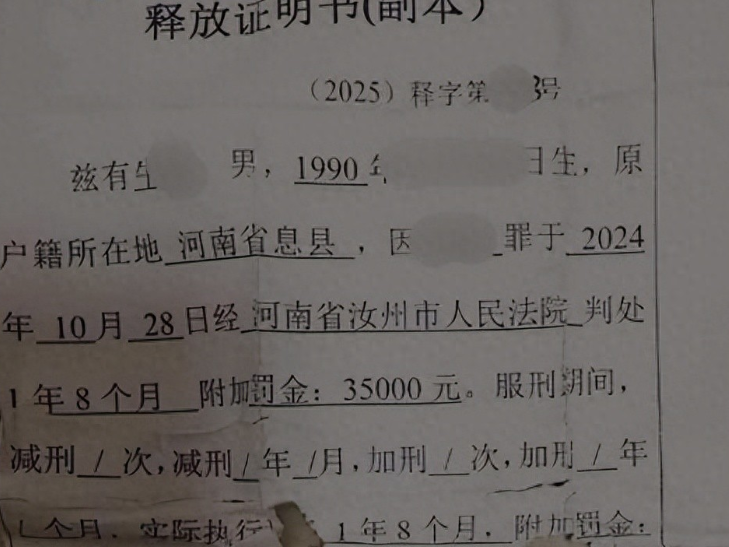 释放证明书(副本)
（2025）释字第 3号
兹有 男，1990年 日生，原
户籍所在地 河南省息县，因 罪于 2024
年 10 月 28 日经 河南省汝州市人民法院 判处
1 年 8 个月 附加罚金：35000 元。服刑期间，
减刑 / 次，减刑 / 年 / 月，加刑 / 次，加刑 / 年
个月，实际执行 1 年 8 个月，附加罚金：